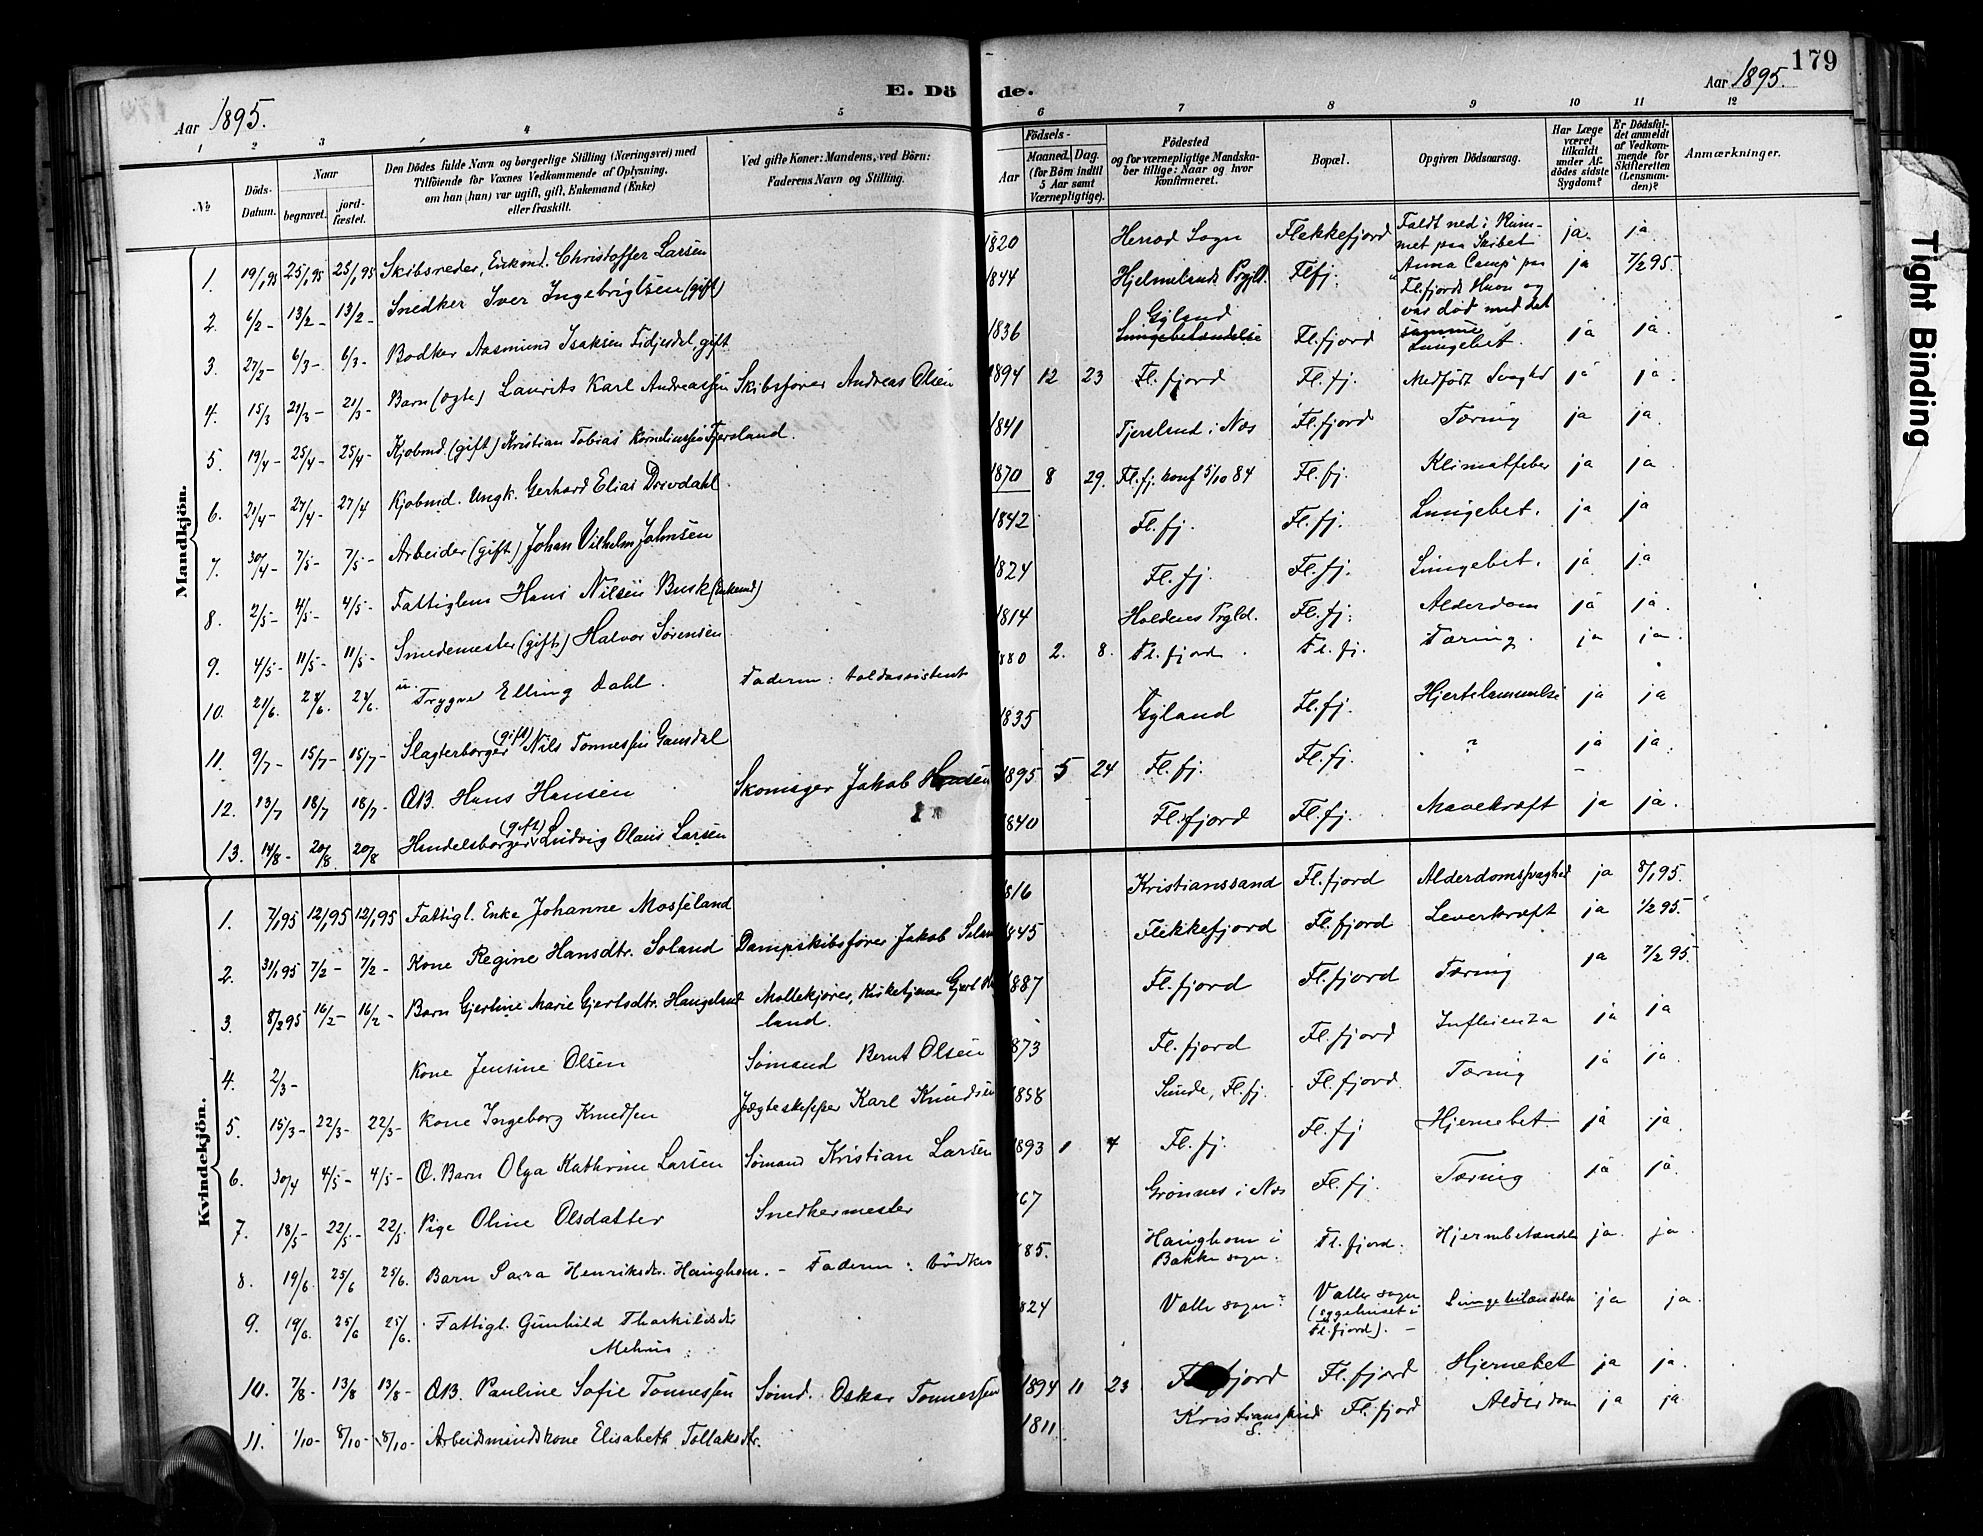 179
E. Döde.
Aar 1895.
Aar 1895.
1 2 3 4 5 6 7 8 9 10 11 12
No
Döds-Datum.
Naar
begravet.
jord-fæstet.
Den Dödes fulde Navn og borgerlige Stilling (Næringsvei) med
Tilföiende for Voxnes Vedkommende af Oplysning,
om han (hun) var ugift, gift, Enkemand (Enke)
eller fraskilt.
Ved gifte Koner: Mandens, ved Börn:
Faderens Navn og Stilling.
Födsels-
Aar
Maaned. Dag.
(for Börn indtil
5 Aar samt
Værnepligtige).
Födested
og for værnepligtige Mandska-
ber tillige: Naar og hvor
konfirmeret.
Bopæl.
Opgiven Dödsaarsag.
Har Læge
været
tilkaldt
under Af-
dödes sidste
Sygdom?
Er Dödsfal-
det anmeldt
af Vedkom-
mende for
Skifteretten
(Lensman-
den)?
Anmærkninger.
Mandkjön.
1. 19/1 95 25/1 95 25/1 95 Skibsreder, Enkmd. Christoffer Larsen 1820 Herrod Sogn Flekkefjord Faldt ned i Rum-
met paa Skibet
"Anna Camp" paa
Fl.fjords Havn og
var död med det
samme ja. ja.
2. 6/2 - 13/2 - 13/2 - Snedker Iver Ingebrigtsen (gift) 1844 Hjelmelands Prgjld. Flfj. ja 7/2 95.
3. 27/2 - 6/3 - 6/3 - Bødker Aasmund Isaksen Fidjedal, gift 1836 Gyland Fl.fjord Lungebet. ja ja.
4. 15/3 21/3 - 21/3 - Barn (ægte) Laurits Karl Andreassen Skibsfører Andreas Olsen 1894 12 23 Fl.fjord Fl.fj. Medfødt Svaghed ja ja.
5. 19/4 - 25/4 - 25/4 - Kjøbmd. (gift) Kristian Tobias Korneliussen Tjersland. 1841 Tjersland i Næs Fl.fjord Tæring ja ja.
6. 21/4 - 27/4 - 27/4 Kjøbmd. Ungk. Gerhard Elias Drivdahl 1870 8 29. Fl.fj. konf 5/10 84 Fl.fj. Klimatfeber ja ja.
7. 30/4 - 7/5 - 7/5 - Arbeider (gift) Johan Vilhelm Johnsen 1842 Fl.fj. Fl.fj. Lungebet. ja ja
8. 2/5 - 4/5 - 4/5 - Fattiglem Hans Nilsen Busk (Enkemd) 1824 Fl.fj. Fl.fj. Lungebet. ja ja
9. 4/5 - 11/5 - 11/5 - Smedemester (gift) Halvor Sørensen 1814 Holdens Prgld. Fl.fj. Alderdom ja ja.
10. 21/6. 24/6. 24/6. u. Trygve Elling Dahl. Faderen: toldassistent 1880 2. 8. Fl.fjord Fl.fj. Tæring. ja ja.
11. 9/7 - 15/7 - 15/7 - Slagterborger (gift) Nils Tønnessen Gausdal 1835 Gyland Fl.fj. Hjertelammelse ja ja
12. 13/7 18/7 18/7 - ÆB. Hans Hansen Skomager Jakob Hansen 1895 5 24 Fl.fj. Fl.fj. ? ja ja.
13. 14/8 - 20/8 20/8 Handelsborger (gift) Ludvig Olaus Larsen 1840 Fl.fjord Fl.fj. Mavekræft ja ja.
Kvindekjön.
1. 7/1 95 12/1 95 12/1 95 Fattigl. Enke Johanne Mosseland 1816 Kristianssand Fl.fjord Alderdomssvaghed ja 8/1 95.
2. 31/1 95 7/2 - 7/2 - Kone Regine Hansdtr. Soland Dampskibsfører Jakob Soland 1845 Flekkefjord Fl.fjord Leverkræft ja 1/2 95.
3. 8/2 95 16/2 - 16/2 - Barn Gjertine Marie Gjertsdtr. Haugeland Møllekjører, Kirketjener Gjert
land. 1887 Fl.fjord Fl.fjord Tæring ja 7/2 95.
4. 2/3 - Kone Jensine Olsen Sømand Bernt Olsen 1873 Fl.fjord Fl.fjord Influenza ja ja
5. 15/3 - 22/3 - 22/3 - Kone Ingeborg Knudsen Jægteskipper Karl Knudsen 1858 Sunde, Fl.fj. Fl.fjord. Tæring ja ja.
6. 30/4 4/5 - 4/5 - Æ. Barn Olga Kathrine Larsen Sømand Kristian Larsen 1893 1 4 Fl.fj. Fl.fj Hjernebet. ja ja.
7. 18/5 - 22/5 - 22/5. Pige Oline Olsdatter Snedkermester 67 Grønnes i Næs Fl.fj. Tæring ja ja.
8. 19/6 25/6 25/6. Barn Sara Henriksdtr. Haughom. - Faderen: bødker 85. Haughom i
Bakke sogn. Fl.fjord. Hjernebetændelse ja. ja.
9. 19/6. 25/6 25/6. Fattigl. Gunhild Thorkildsdtr
Mehus 824 Valle sogn. Valle sogn
(sygehuset i
Fl.fjord). - Lungebetændelse ja ja.
10. 7/8 - 13/8 13/8 - ÆB. Pauline Sofie Tønnessen Sømd. Oskar Tønnessen 1894 11 23 Fl.fjord Fl.fjord Hjernebet ja ja.
11. 1/10 - 8/10 - 8/10 - Arbeidsmandskone Elisabeth Tollaksdtr. 1811 Kristianssand
S. Fl.fjord Alderdom ja ja
Tight Binding